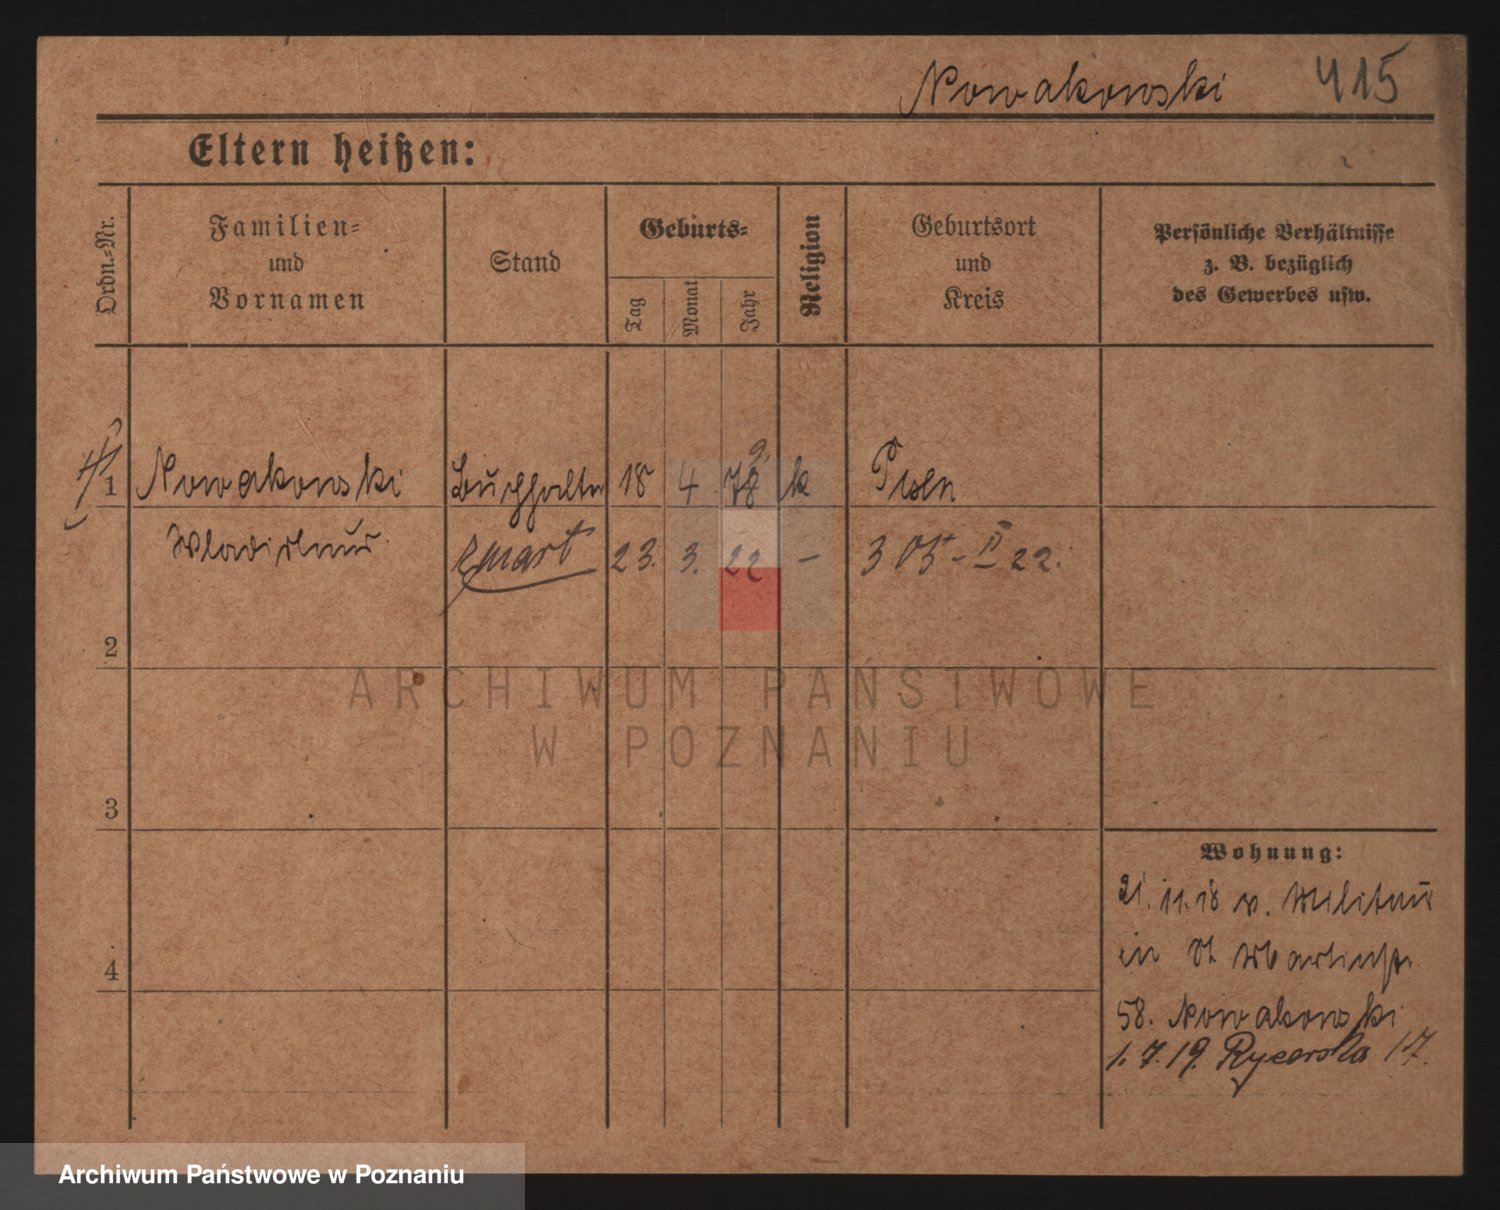 Nowakowski 415
Eltern heißen:
Ordn.-Nr.
Familien-
und
Vornamen
Stand
Geburts-
Tag
Monat
Jahr
Religion
Geburtsort
und
Kreis
Persönliche Verhältnisse
z. B. bezüglich
des Gewerbes usw.
1 Nowakowski Buchhalter 18 4 78 k
zmarł 23. 3. 22 –
2
3
4
Wohnung:
21.11.18 v. Militär
in St Martinstr.
58. Nowakowski
1.7.19. Rycerska 17.
ARCHIWUM PAŃSTWOWE
W POZNANIU
Archiwum Państwowe w Poznaniu